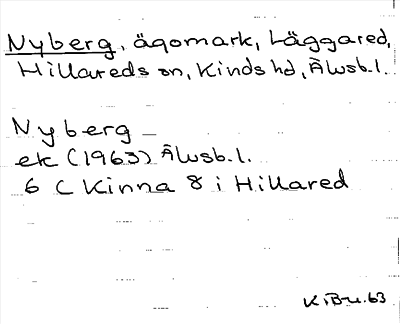 Nyberg, ägomark, Läggared,
Hillareds sn, Kinds hd, Älvsb.l.
Nyberg –
ek (1963) Älvsb.l.
6 C Kinna 8 i Hillared
K.Br-u.63